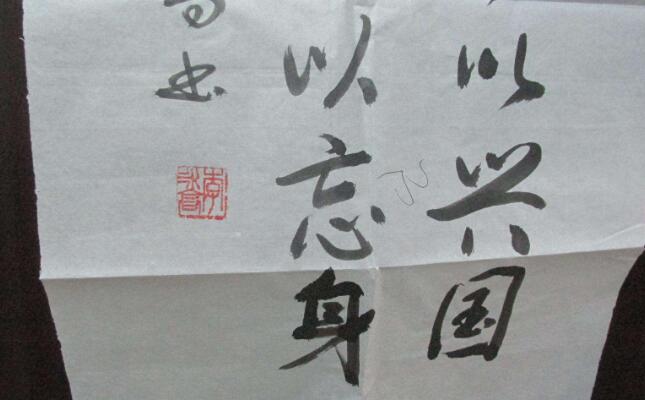 以兴国
以忘身
书